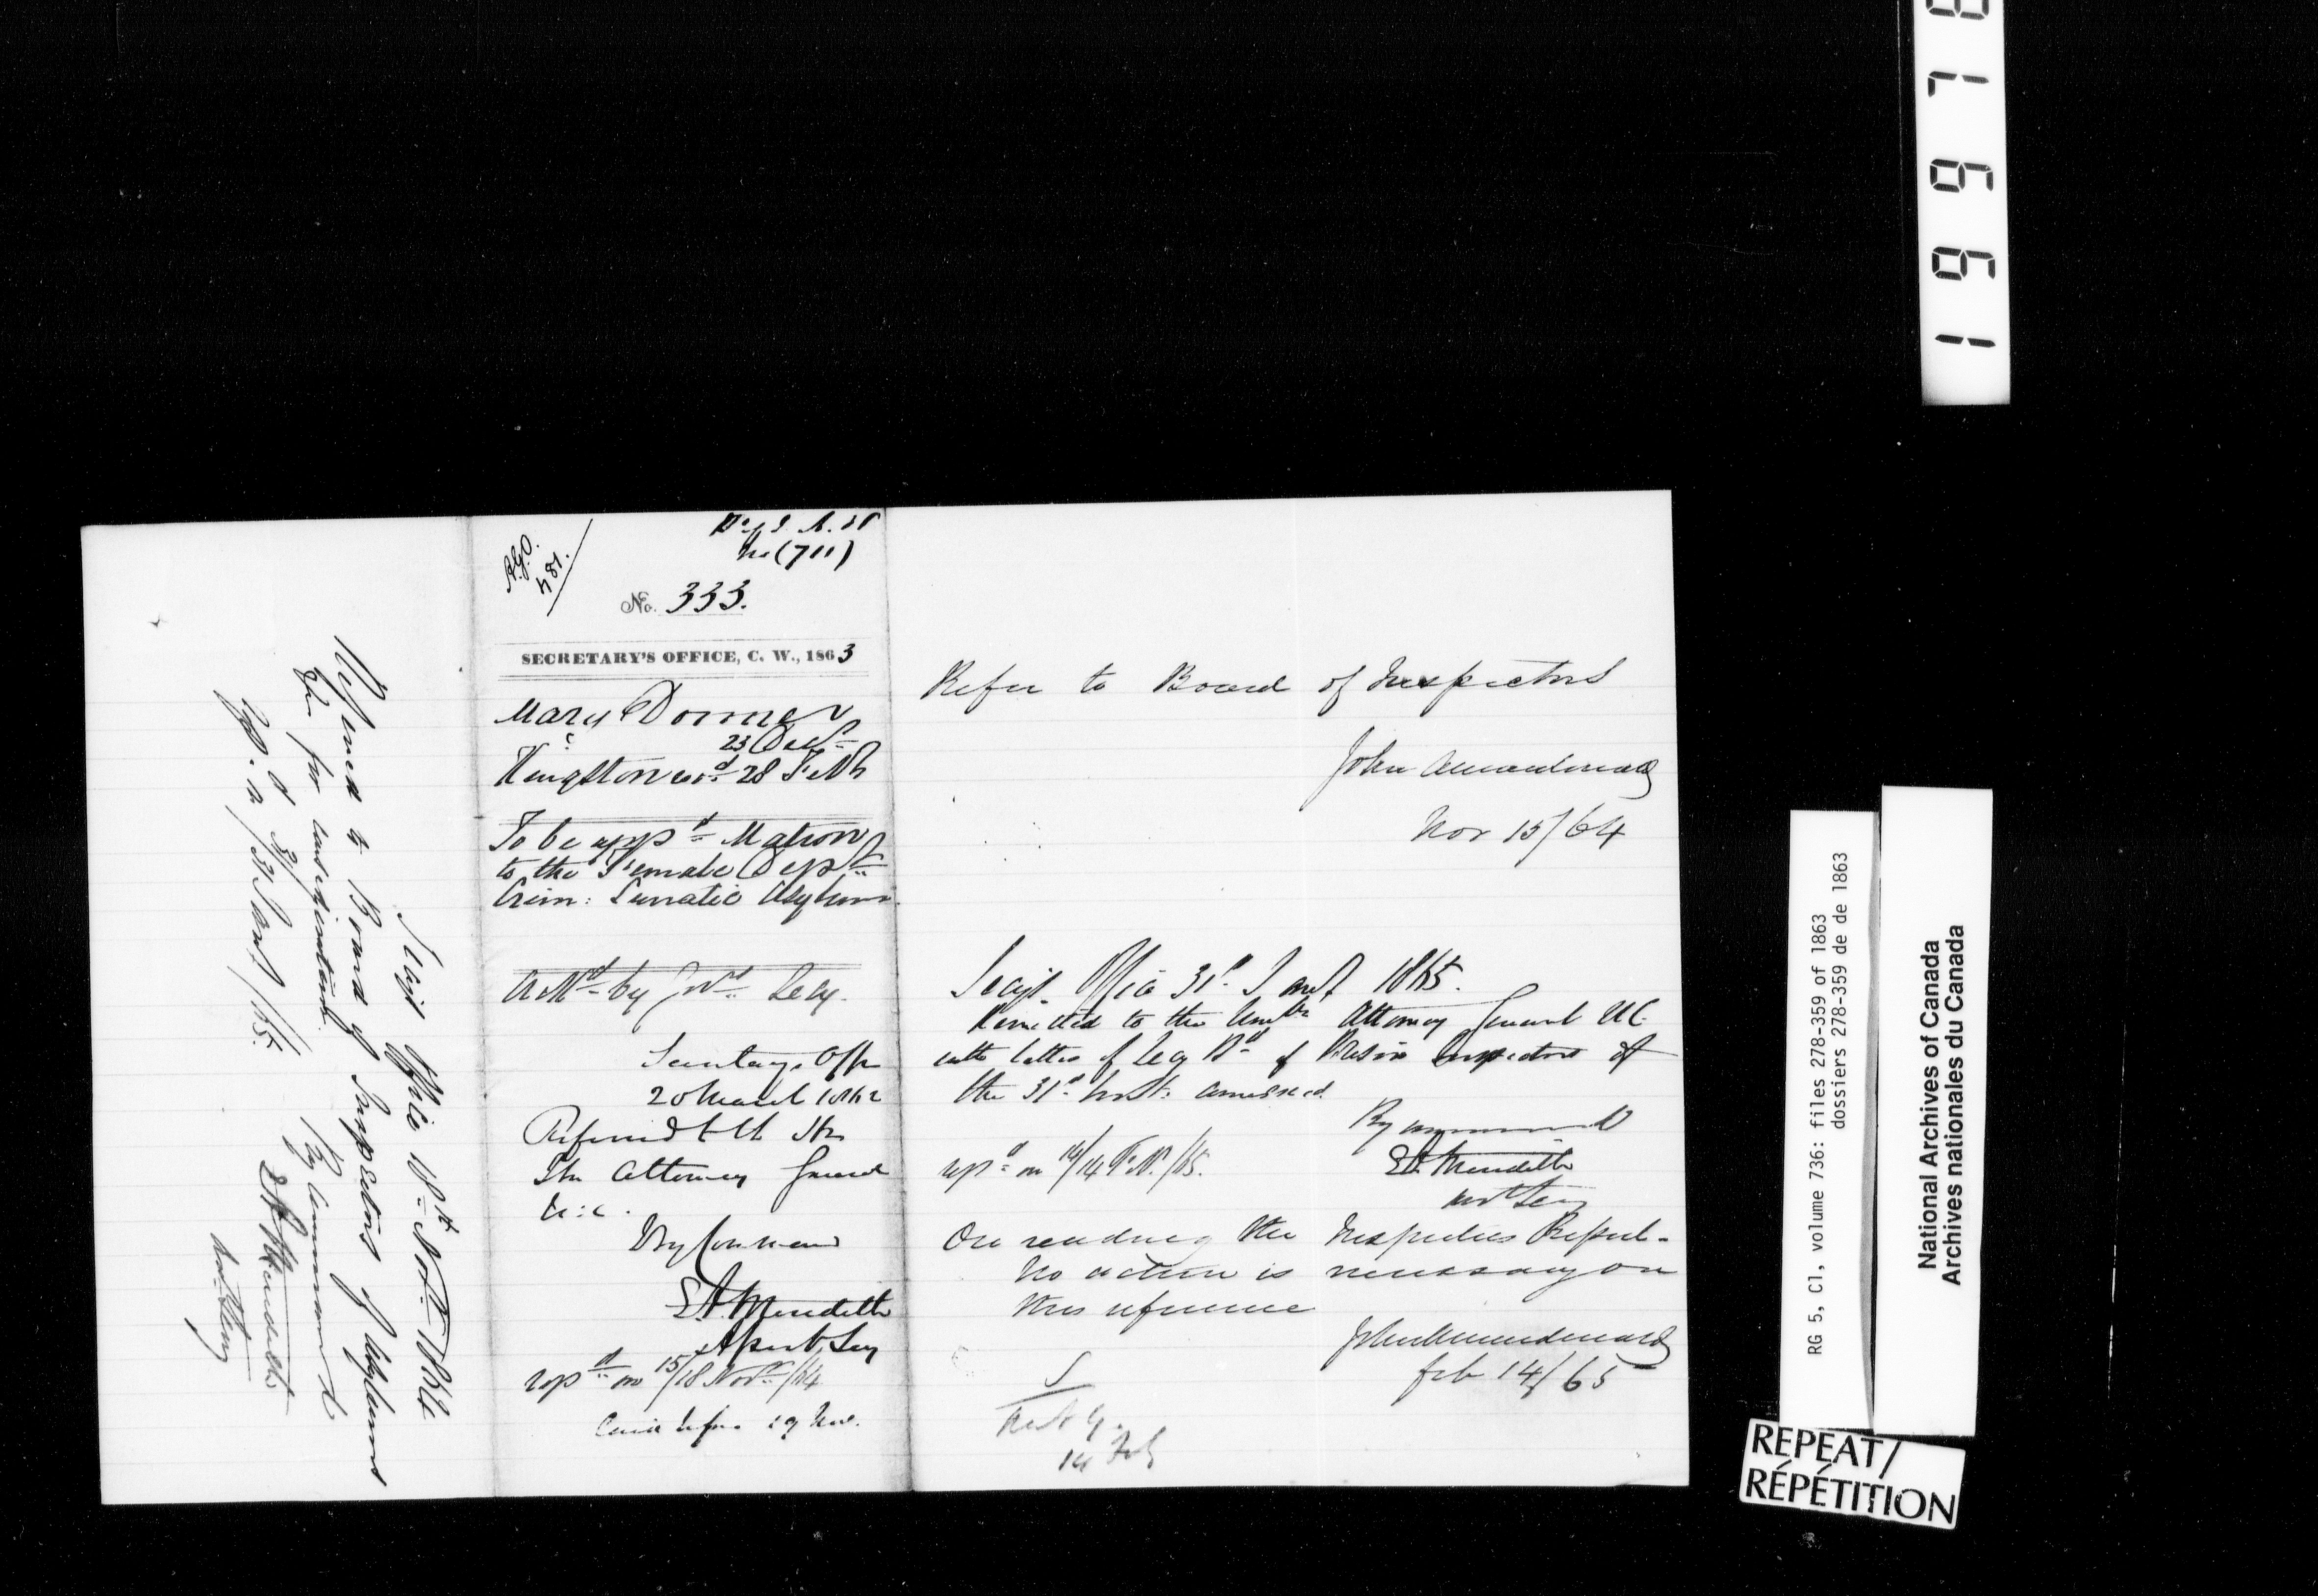 Secys Office 18th Novr 1864
Referred to Board of Inspectors of Asylums
&c for consideration
By Command
E A Meredith
Asst Secy
Rep. d 31 Jany /65.
A.G.O.
481.
No (711)
No. 333.
SECRETARY'S OFFICE, C. W., 1863
Mary Dormer
23 Decr
Kingston recd 28 Feb
To be appd Matron
to the Female Dept
Crim: Lunatic Asylum.
Ackd by Secy.
Secretarys Offe
20 March 1863
Referred to the Hon
The Attorney General
U.C.
By Command
E A Meredith
Assist Secy
repd on 15/18 Novr /64
19 Nov.
Refer to Board of Inspectors
John A Macdonald
Nov 15/64
Secys Office 31st Jany 1865.
Remitted to the Honble Attorney General UC
with letter of Secy Bd of Prison Inspectors of
the 31st Inst: annexed.
By command
E A Meredith
Asst Secy
repd on 14/14 Feb. /65.
On reading the Inspectors Report -
No action is necessary on
this reference
John A Macdonald
Feb 14/65
14 Feb
1 6 6 7
RG 5, C1, volume 736: files 278-359 of 1863
dossiers 278-359 de de 1863
National Archives of Canada
Archives nationales du Canada
REPEAT/
RÉPÉTITION